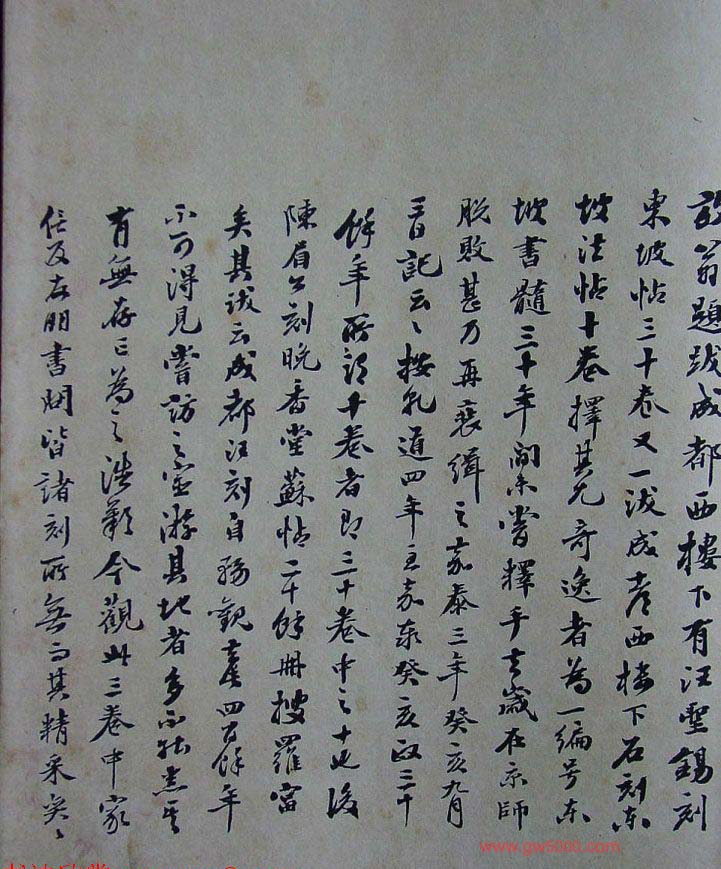 放翁題跋成都西樓下有汪聖錫刻
東坡帖三十卷又一跋成都西樓下石刻東
坡法帖十卷擇其尤奇逸者為一編号東
坡書髓三十年間未嘗釋手去歲在京師
脫敗甚乃再裝緝之嘉泰三年癸亥九月
三日記云々按乹道四年至嘉泰癸亥政三十
餘年所謂十卷者即三十卷中之十也後
陳眉公刻晚香堂蘇帖二十餘冊搜羅富
矣其跋云成都汪刻自務觀 四百餘年
不可得見嘗訪之宦游其地者多不能悉其
有無存亡為之浩歎今觀此三卷中家
任反右朋書關皆諸刻所無而其精采奕々
www.gw5000.com